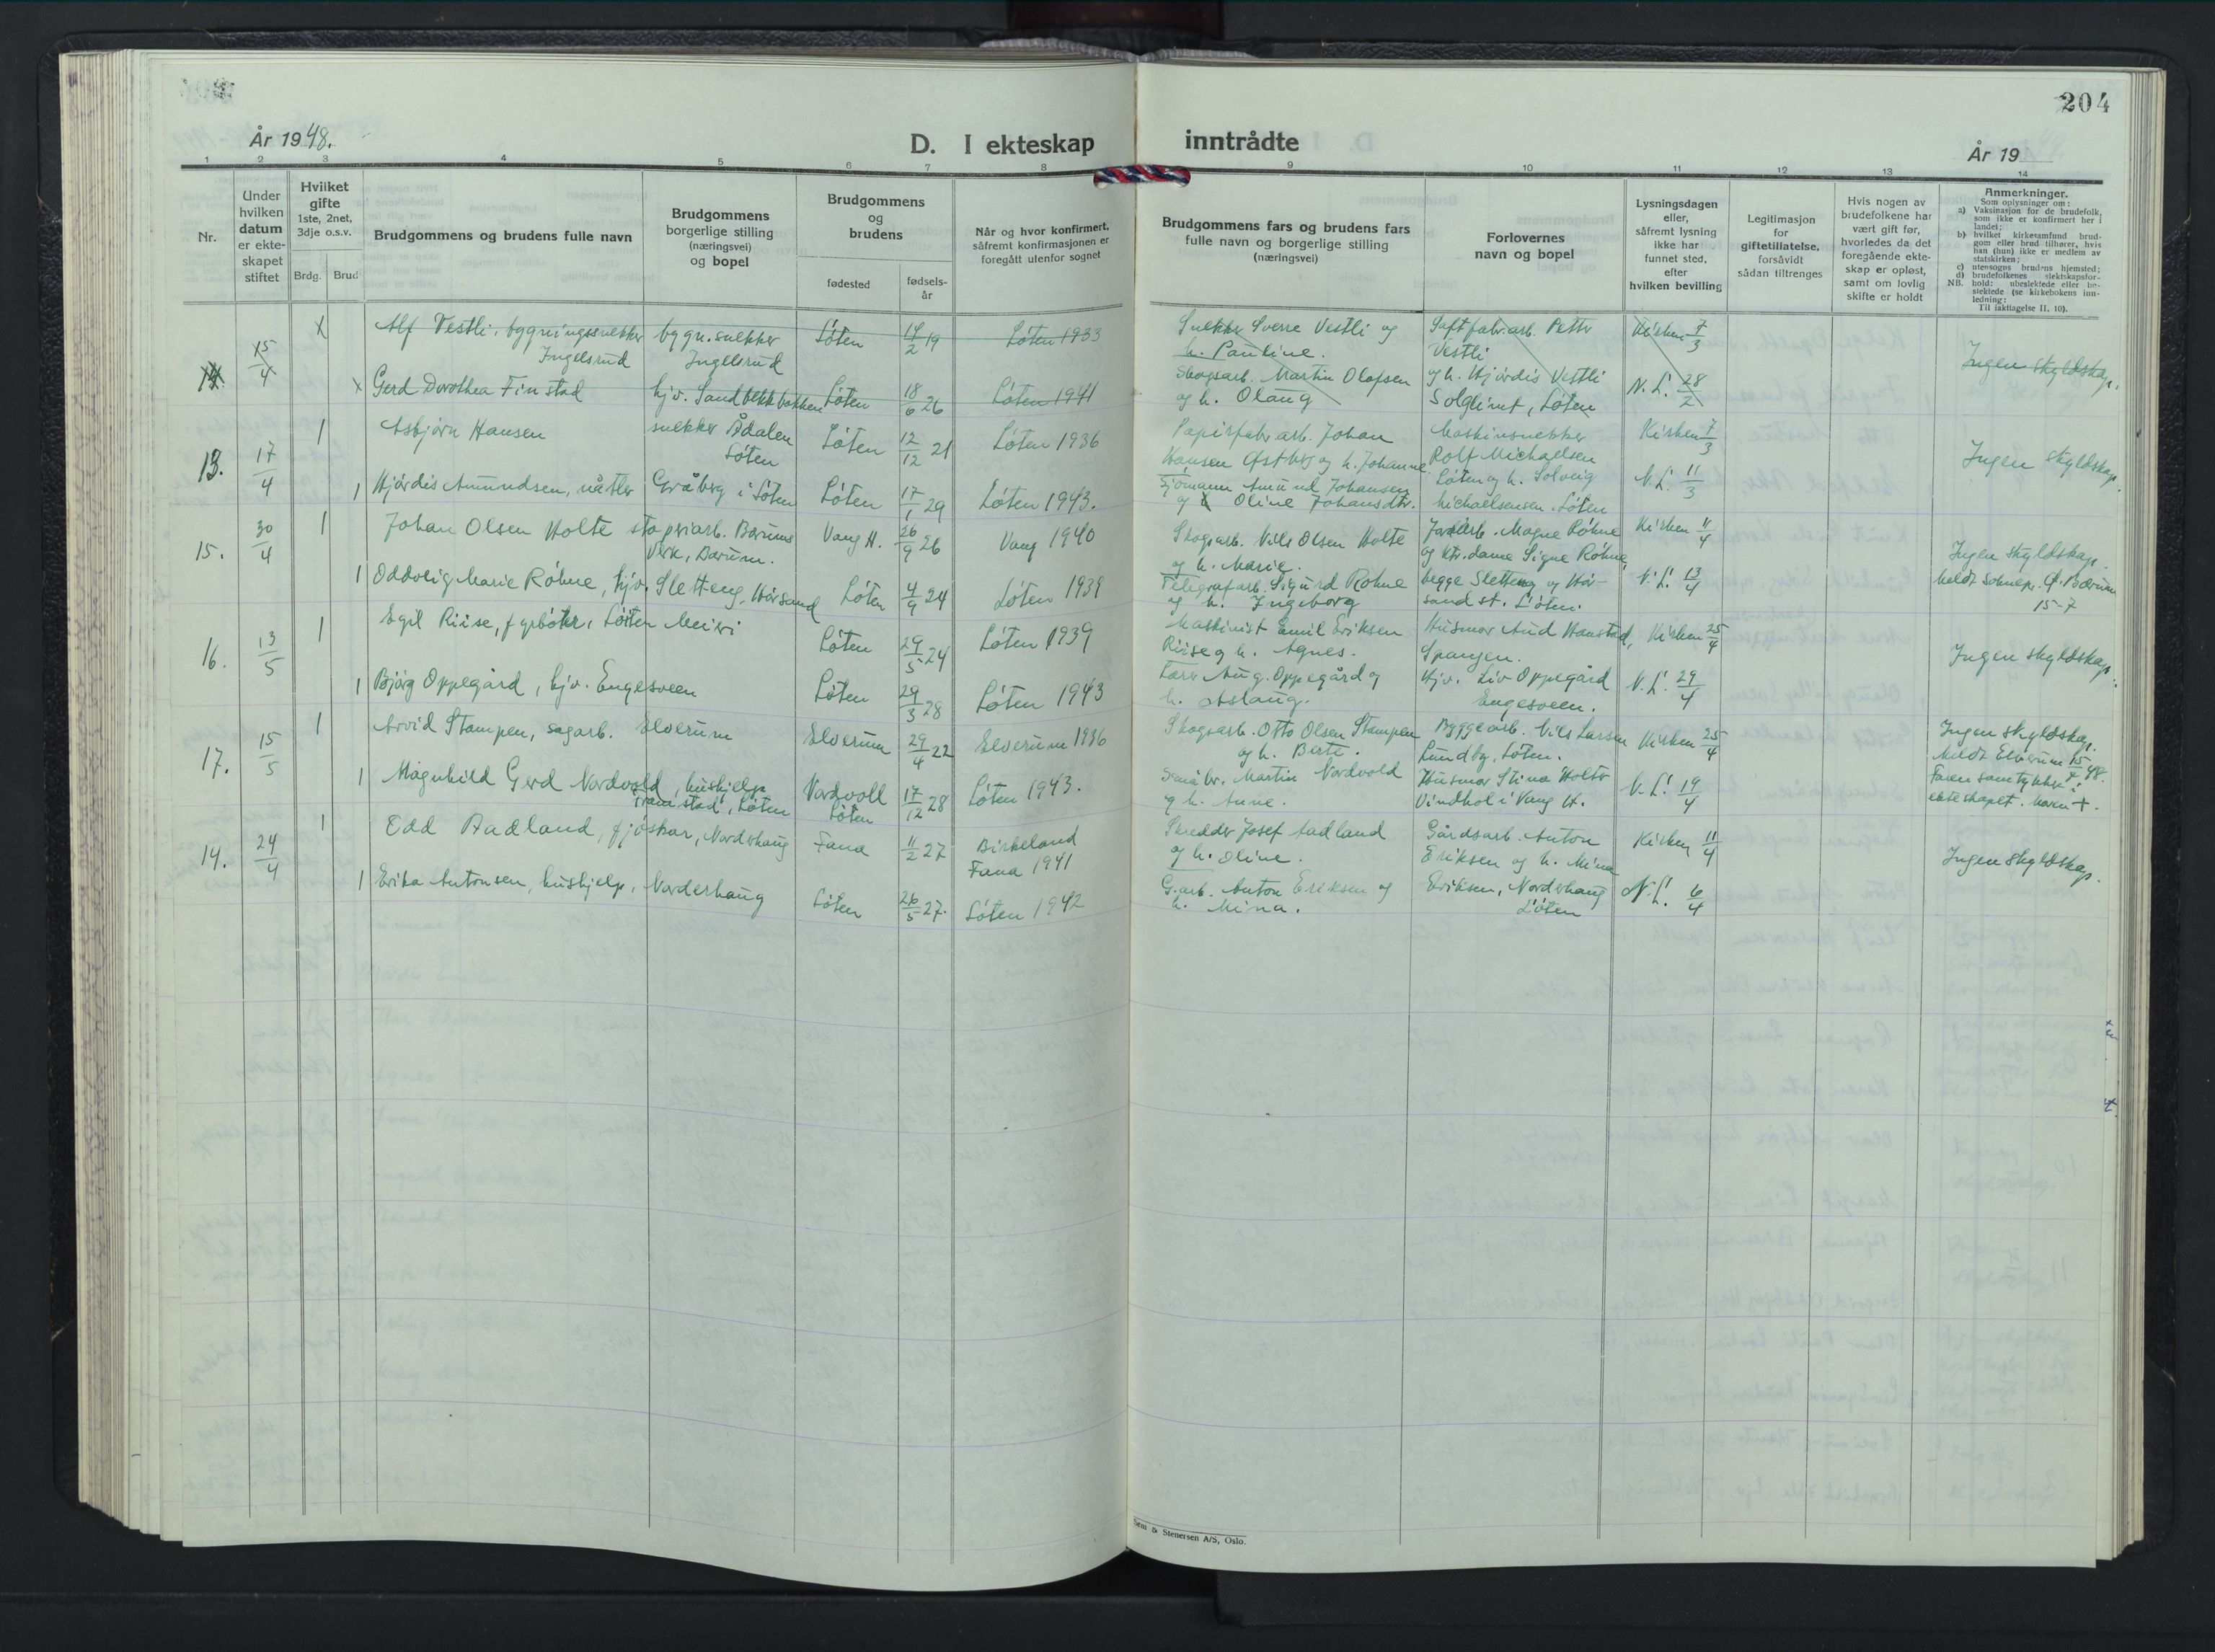 204
År 1948.
D. I ekteskap inntrådte
År 19
1 2 3 4 5 6 7 8 9 10 11 12 13 14
Nr.
Under hvilken datum er ekte-skapet stiftet
Hvilket gifte 1ste, 2net, 3dje o.s.v.
Brdg. Brud
Brudgommens og brudens fulle navn
Brudgommens borgerlige stilling (næringsvei) og bopel
Brudgommens og brudens
fødested
fødsels-år
Når og hvor konfirmert, såfremt konfirmasjonen er foregått utenfor sognet
Brudgommens fars og brudens fars fulle navn og borgerlige stilling (næringsvei)
Forlovernes navn og bopel
Lysningsdagen eller, såfremt lysning ikke har funnet sted, efter hvilken bevilling
Legitimasjon for giftetillatelse, forsåvidt sådan tiltrenges
Hvis nogen av brudefolkene har vært gift før, hvorledes da det foregående ekte-skap er opløst, samt om lovlig skifte er holdt
Anmerkninger.
Som oplysninger om:
a) Vaksinasjon for de brudefolk, som ikke er konfirmert her i landet;
b) hvilket kirkesamfund brud-gom eller brud tilhører, hvis han (hun) ikke er medlem av statskirken;
c) utensogns brudens hjemsted;
d) brudefolkenes slektskapsfor-hold: ubeslektede eller be-slektede (se kirkebokens inn-ledning:
NB. Til iakttagelse II, 10).
14 15/4 x Alf Vestli, bygningssnekker Ingelsrud bygn.snekker Ingelsrud Løten 14/2 19 Løten 1933 Snekker Sverre Vestli og h. Pauline. Saftfabr.arb. Petter Vestli Kirken 7/3 Ingen skyldskap.
x Gerd Dorothea Finstad hjv. Sandbekkbakken Løten 18/6 26 Løten 1941 Skogsarb. Martin Olafsen og h. Olaug og h. Hjørdis Vestli Solglimt, Løten N. L. 28/2
13. 17/4 1 Asbjørn Hansen snekker Ådalen Løten Løten 12/12 21 Løten 1936 Papirfabr.arb. Johan Hansen Østberg og h. Johanne Maskinsnekker Rolf Michaelsen Kirken 7/3 Ingen skyldskap.
1 Hjørdis Amundsen, nåtler Gråberg i Løten Løten 17/1 29 Løten 1943. Sjømann Amund Johansen og Oline Johansdtr. Løten og h. Solveig Michaelsensen Løten N. L. 11/3
15. 30/4 1 Johan Olsen Holte støperiarb. Bærums Verk, Bærum. Vang H. 26/9 26 Vang 1940 Skogsarb. Nils Olsen Holte og h. Marie. Magne Røhne og ktr.dame Signe Røhne, Kirken 11/4 Ingen skyldskap.
1 Oddveig Marie Røhne, hjv. Sletteng, Hørsand Løten 4/9 24 Løten 1939 Telegrafarb. Sigurd Røhne og h. Ingeborg begge Sletteng og Hør-sand st. Løten. N. L. 13/4 Meldt Bærum 15-7
16. 13/5 1 Egil Riise, Løiten Meieri Løten 29/5 24 Løten 1939 Maskinist Emil Eriksen Riise og h. Agnes. Husmor Aud Hanstad, Spangen. Kirken 25/4 Ingen skyldskap.
1 Bjørg Oppegård, hjv. Engesveen Løten 29/3 28 Løten 1943 Aug. Oppegård og h. Aslaug. Hjv. Liv Oppegård Engesveen. N. L. 29/4
17. 15/5 1 Arvid Stampen, sagarb. Elverum Elverum 29/4 22 Elverum 1936 Skogsarb. Otto Olsen Stampen og h. Berte. Byggearb. Nils Larsen Lundby, Løten. Kirken 25/4 Ingen skyldskap. Meldt Elverum 15/4 48.
1 Magnhild Gerd Nordvold, hushjelp Løten Nordvoll Løten 17/12 28 Løten 1943. Småbr. Martin Nordvold og h. Anne. Husmor Stina Holter Vindhol i Vang H. N. L. 19/4 Faren samtykker i ekteskapet. Moren +.
14. 24/4 1 Odd Aadland, fjøskar, Norderhaug Fana 11/2 27 Birkeland Fana 1941 Skredder Josef Aadland og h. Oline. Gårdsarb. Anton Eriksen og h. Mina Kirken 11/4 Ingen skyldskap.
1 Erika Antonsen, hushjelp, Norderhaug Løten 26/5 27. Løten 1942 G.arb. Anton Eriksen og h. Mina. Eriksen, Norderhaug Løten N. L. 6/4
& Stenersen A/S, Oslo.